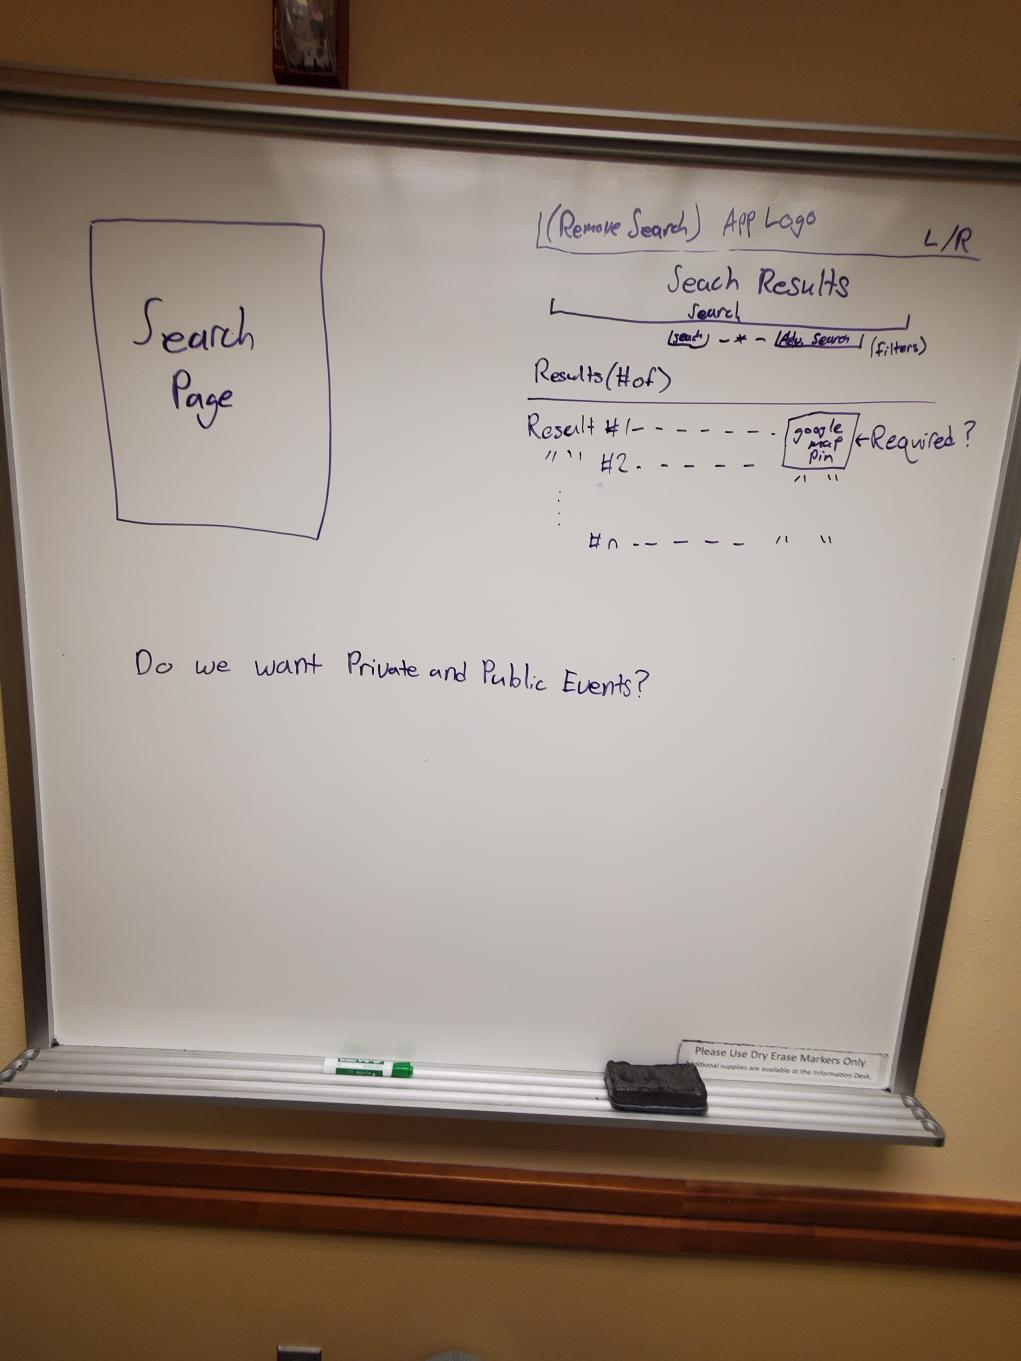 Search
Page
(Remove Search) App Logo
L/R
Seach Results
Search
Search - * - Adv. Search (filters)
Results (# of)
Result #1 - - - - - - - google map pin ← Required?
" " #2 - - - - - " "
#n - - - - - - " "
Do we want Private and Public Events?
Please Use Dry Erase Markers Only
supplies are available at the Information Desk.